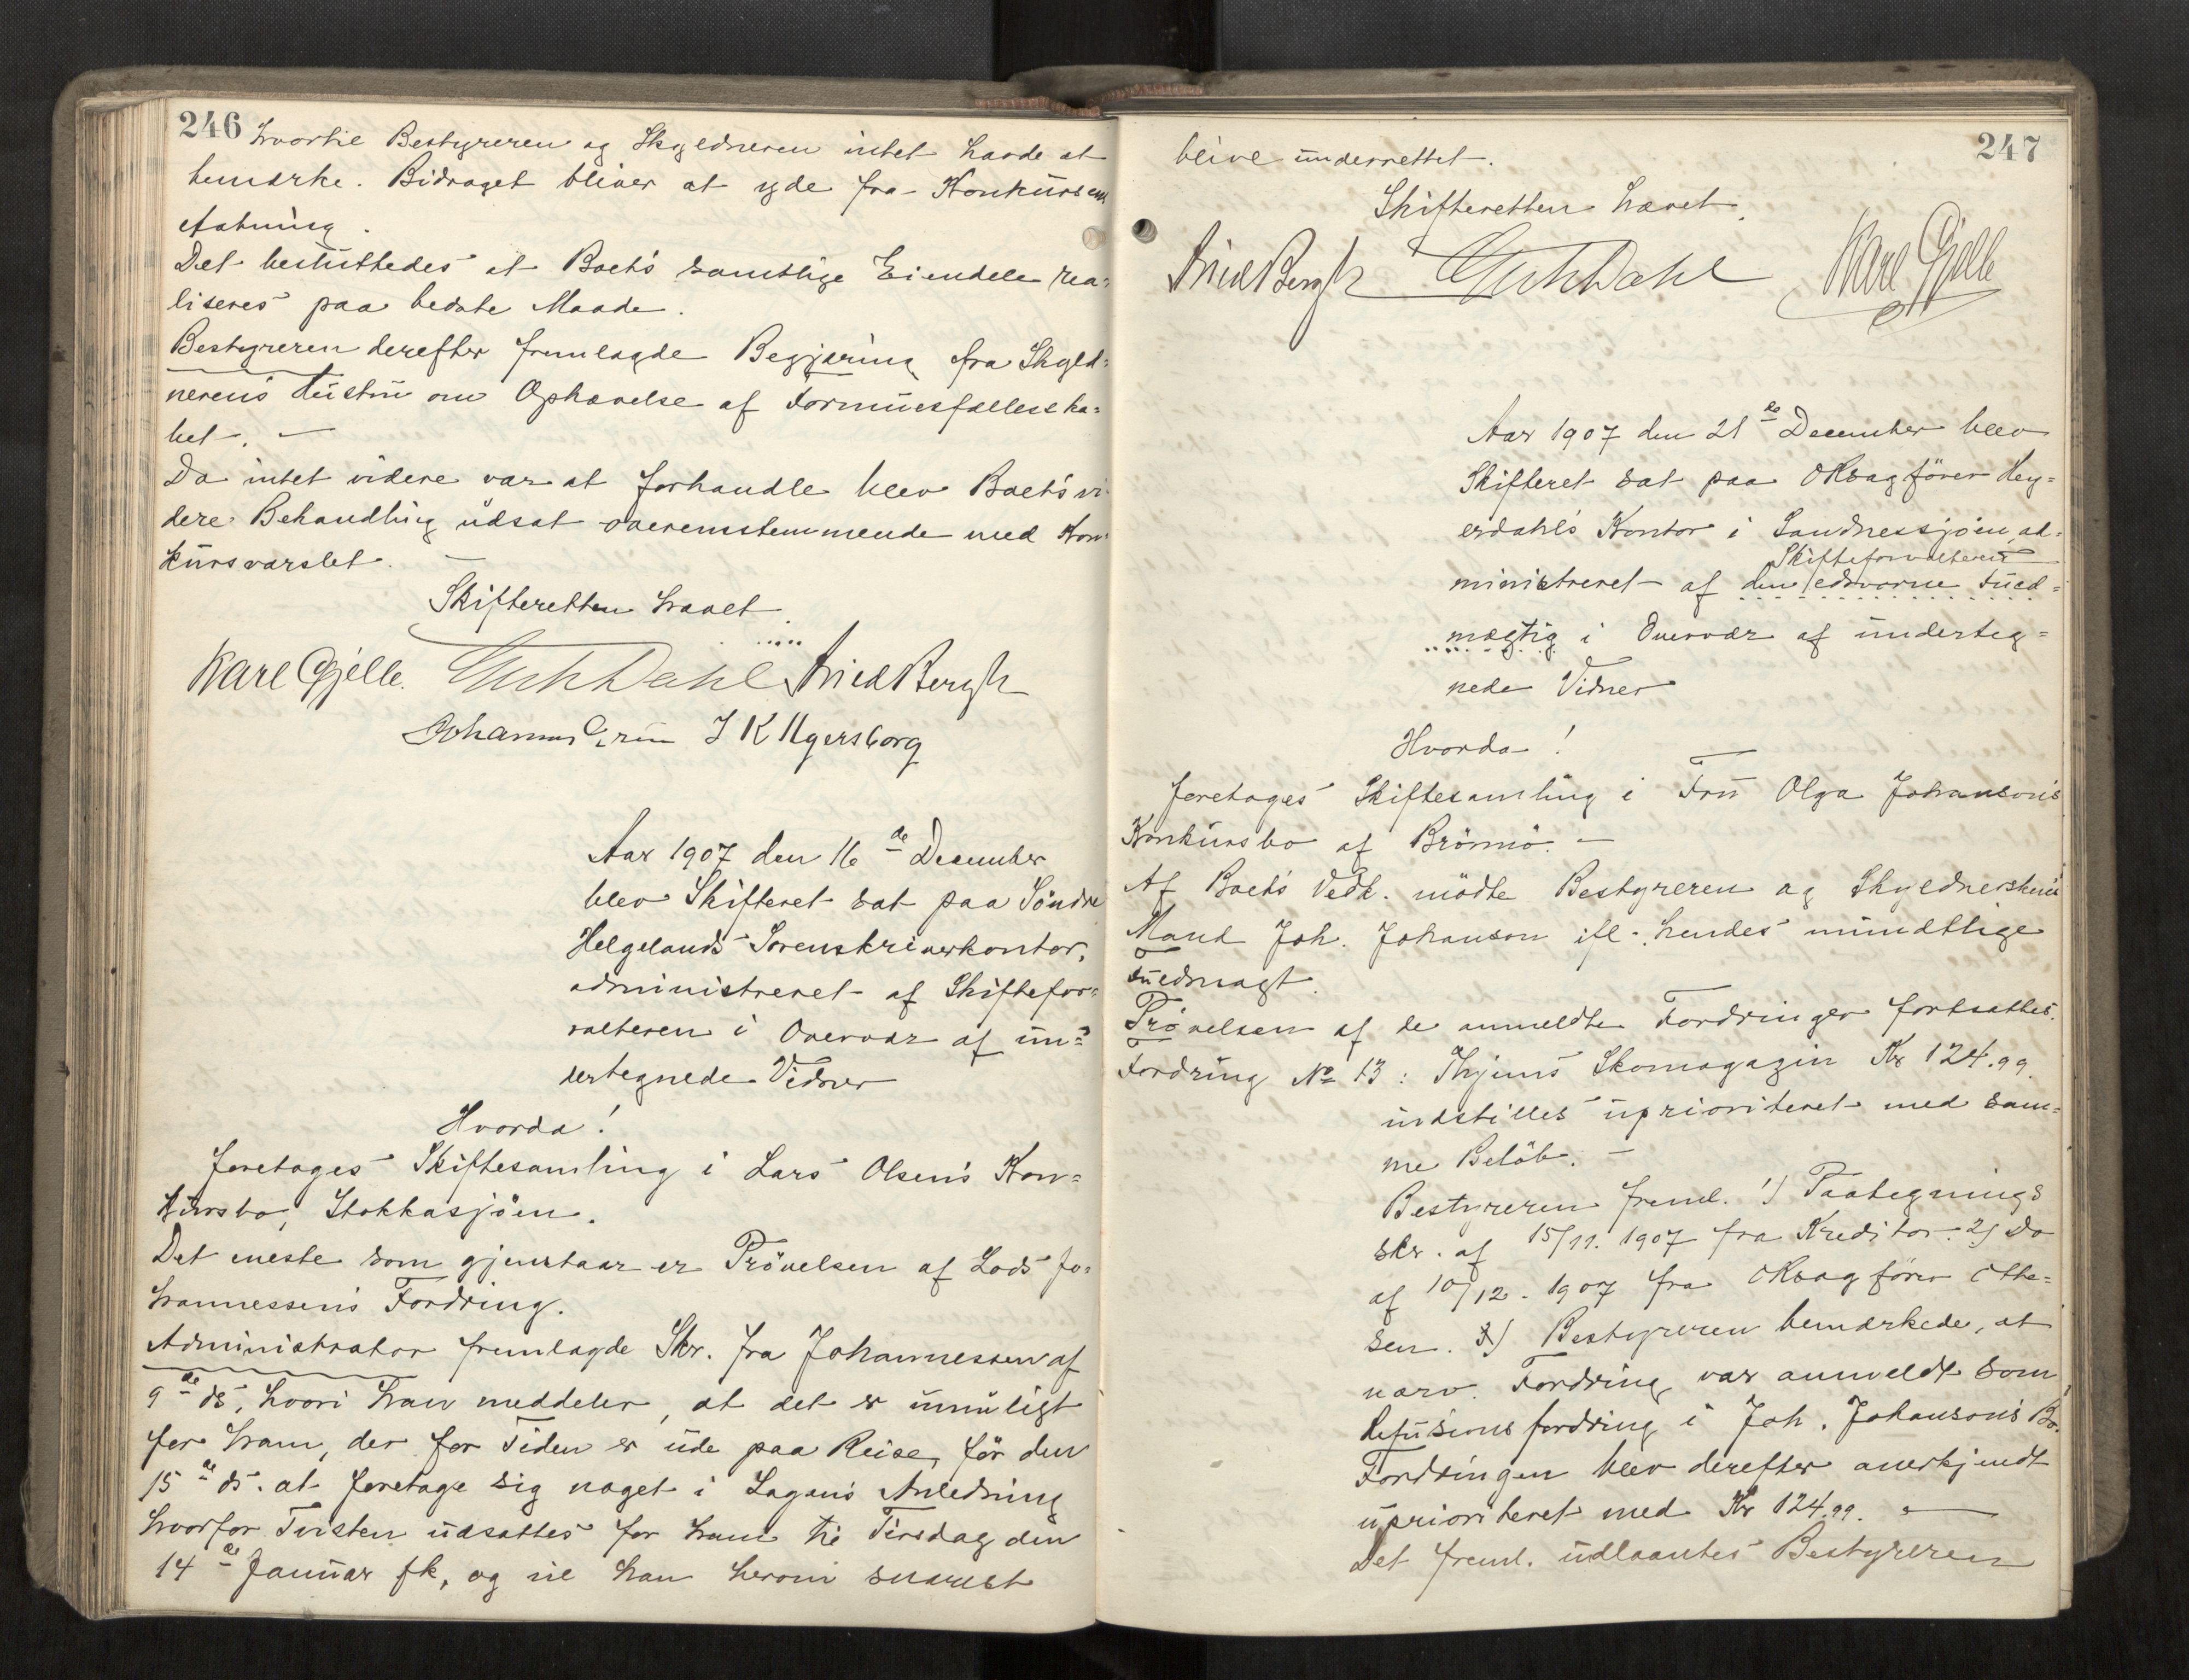 246
hvortil Bestyreren og Skyldneren intet havde at
bemærke. Bidraget bliver at yde fra Konkursens
Aabning.
Det besluttedes at Boets samtlige Eiendele rea=
liseres paa bedste Maade.
Bestyreren derefter fremlagde Begjæring fra Skyld=
nerens Hustru om Ophævelse af Formuesfællesska=
bet. —
Da intet videre var at forhandle blev Boets vi=
dere Behandling udsat overensstemmende med Kon=
kursvarslet.
Skifteretten hævet.
Karl Gjelle. Dahl Bergh
Johannes Grün J K Ugersborg
Aar 1907 den 16de December
blev Skifteret sat paa Söndre
Helgelands Sorenskriverkontor,
administreret af Skiftefor=
valteren i Overvær af un=
dertegnede Vidner
Hvorda!
foretages Skiftesamling i Lars Olsens Kon=
kursbo, Stokkasjöen.
Det eneste som gjenstaar er Prövelsen af Lods Jo=
hannessens Fordring.
Administrator fremlagde Skr. fra Johannessen af
9de ds, hvori han meddeler, at det er umuligt
for ham, der for Tiden er ude paa Reise, för den
15de ds. at foretage sig noget i Sagans Anledning
hvorfor Tvisten udsattes for ham til Tirsdag den
14de Januar fk, og vil han herom snarest
247
blive underrettet.
Skifteretten hævet.
Bergh Dahl Karl Gjelle
Aar 1907 den 21de December blev
Skifteret sat paa ORsagförer Hey=
erdahls Kontor i Sandnessjöen, ad=
Skifteforvalterens
ministreret af den edsvorne Fuld=
mægtig i Overvær af underteg=
nede Vidner
Hvorda!
foretages Skiftesamling i Fru Olga Johansons
Konkursbo af Brönnö. —
Af Boets Vedk. mödte Bestyreren og Skyldnerskens
Mand Joh. Johanson ifl. hendes mundtlige
Fuldmagt.
Prövelsen af de anmeldte Fordringer fortsattes.
Fordring No 13: Thjems Skomagazin Kr 124.99.
indstilles uprioriteret med sam=
me Belöb. —
Bestyreren freml. 1) Paategnings
skr. af 15/11. 1907 fra Kreditor. 2) Do
af 10/12. 1907 fra ORsagförer Otte=
sen. 3) Bestyreren bemærkede, at
nærv. Fordring var anmeldt som
Refusionsfordring i Joh. Johansons Bo.
Fordringen blev derefter anerkjendt
uprioriteret med Kr 124.99. —
Det freml. udlaantes Bestyreren